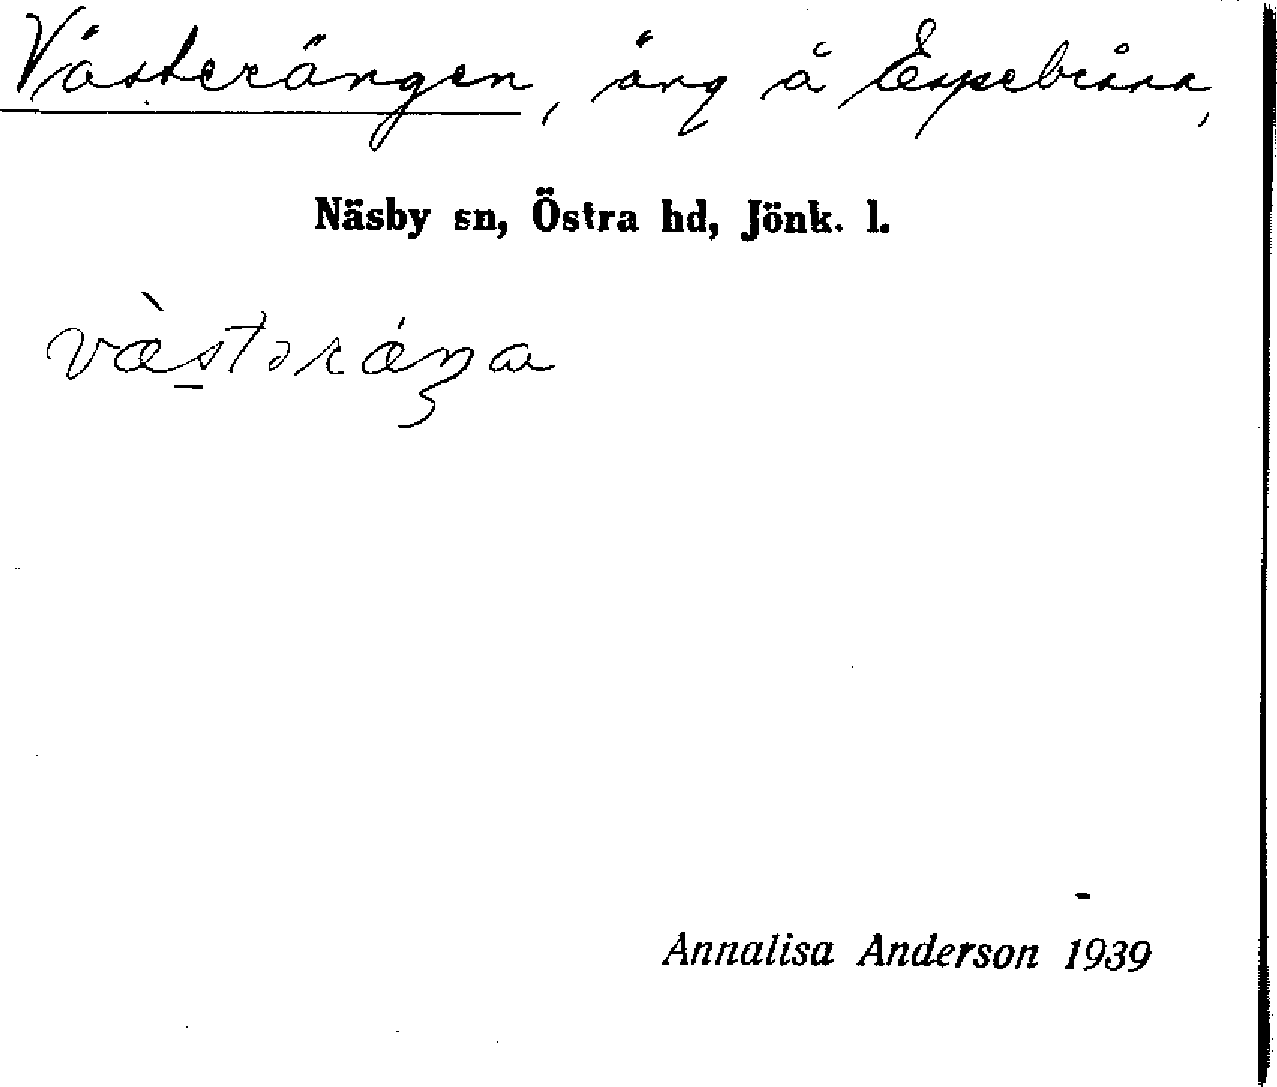 Västerängen, äng å Espebrånn,
Näsby sn, Östra hd, Jönk. l.
væ̀stərǽŋa
Annalisa Anderson 1939